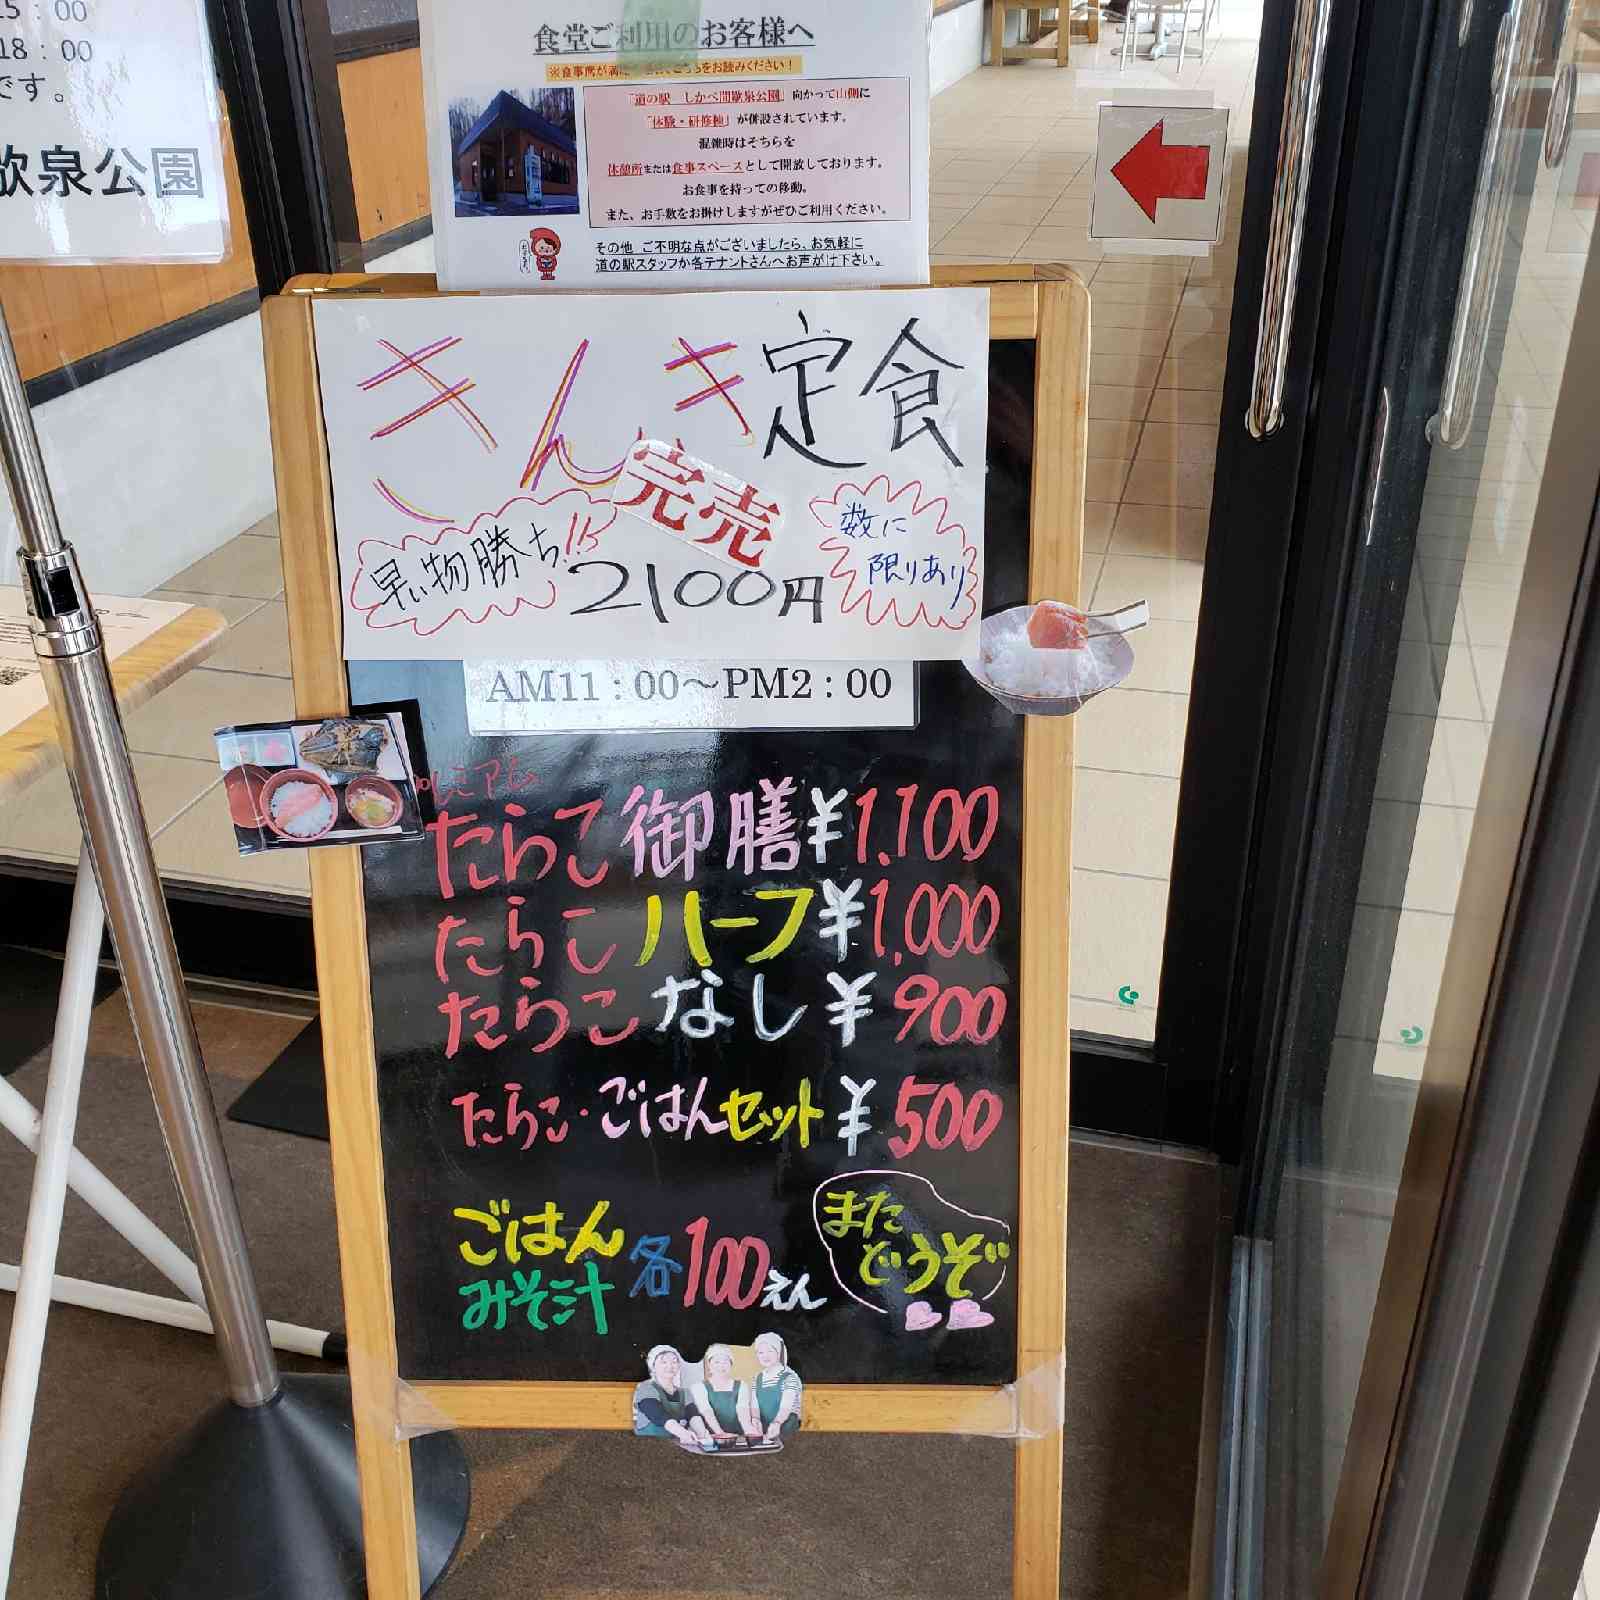 15：00
18：00
です。
歇泉公園
食堂ご利用のお客様へ
「道の駅 しかべ間歇泉公園」向かって山側に
「体験・研修棟」が併設されています。
混雑時はそちらを
休憩所または食事スペースとして開放しております。
お食事を持っての移動。
また、お手数をお掛けしますがぜひご利用ください。
その他 ご不明な点がございましたら、お気軽に
道の駅スタッフか各テナントさんへお声がけ下さい。
きんき定食
完売
早い物勝ち!!
2100円
数に
限りあり
AM11：00～PM2：00
プレミアム
たらこ御膳¥1,100
たらこハーフ¥1,000
たらこなし¥900
たらこ・ごはんセット¥500
ごはん
みそ汁
各100えん
また
どうぞ